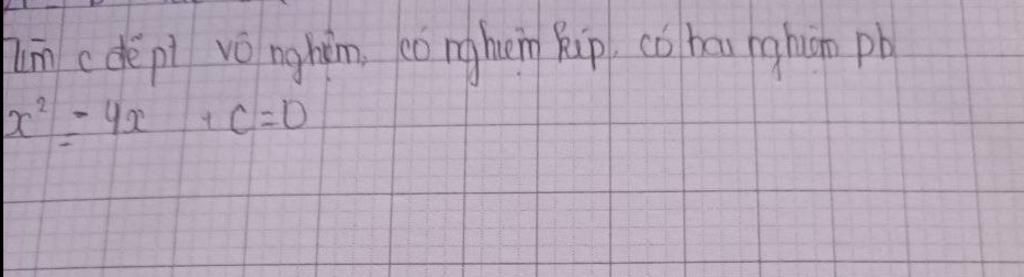 Tìm c để pt vô nghiệm, có nghiệm kép, có hai nghiệm pb
x² - 4x + c = 0